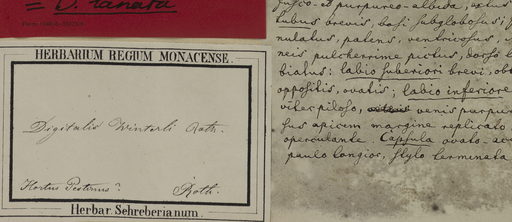 = D. lanata
HERBARIUM REGIUM MONACENSE.
Digitalis Winterli Roth.
Hortus Pestinus?
Roth.
Herbar. Schreberianum.
fusco-et purpureo-albida,
tubus brevis, basi subglobosus,
nulatus, patens, ventricosus,
neis pulcherrime pictus, dorso
biatus: labio superiori brevi,
oppositis, ovatis; labio inferiore
piloso, venis purpur
sus apicem margine replicato
operculante. Capsula ovato-
paulo longior, stylo terminata